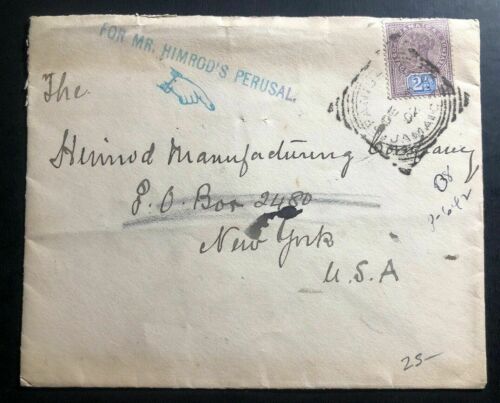 FOR MR. HIMROD'S PERUSAL.
2½
JAMAICA
The
Himrod Manufacturing Company
P.O. Box 2480
New York
U.S.A
25-